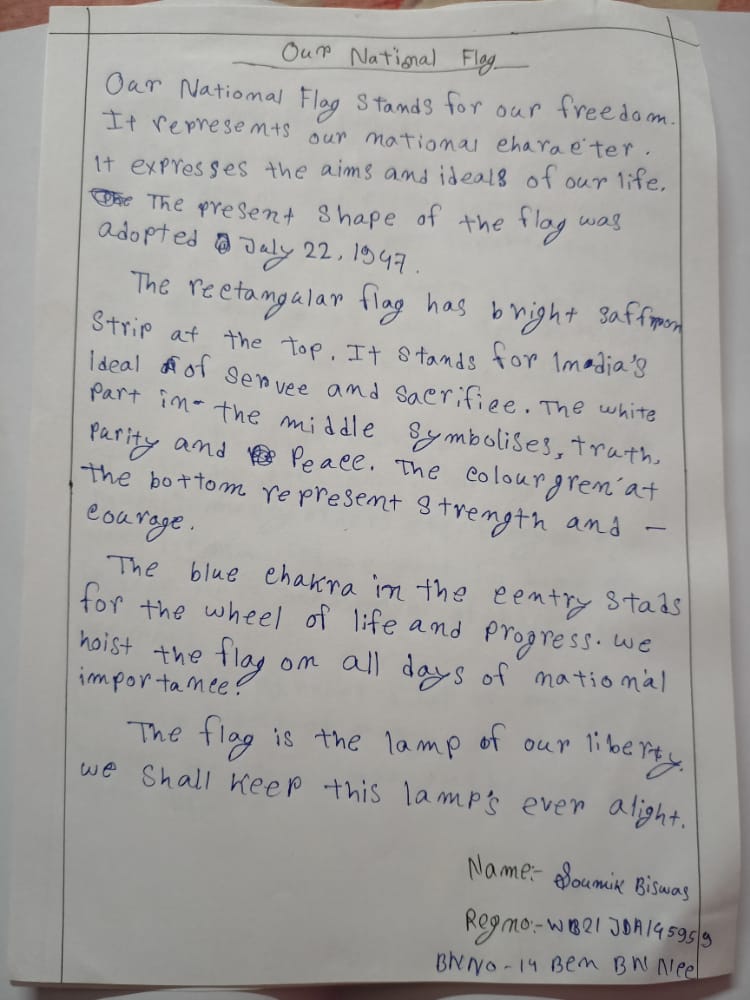 Our National Flag
Our National Flag Stands for our freedom.
It represents our national character.
It expresses the aims and ideals of our life.
The present shape of the flag was
adopted July 22, 1947.
The rectangular flag has bright saffron
Strip at the top. It stands for India's
Ideal of servce and sacrifice. The white
part in- the middle symbolises, truth,
parity and Peace. The colour gren at
the bottom represent strength and -
courage.
The blue chakra in the centry stads
for the wheel of life and progress. we
hoist the flag on all days of national
importance.
The flag is the lamp of our liberty.
we shall keep this lamp's ever alight.
Name:- Soumik Biswas
Regno:- WB21 JDA145959
BN NO - 14 Ben BN Nee